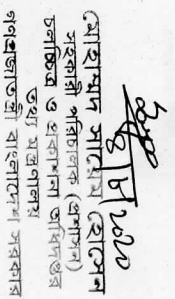 মোহাম্মদ সায়েম হোসেন
সহকারী পরিচালক (প্রশাসন)
চলচ্চিত্র ও প্রকাশনা অধিদপ্তর
তথ্য মন্ত্রণালয়
গণপ্রজাতন্ত্রী বাংলাদেশ সরকার